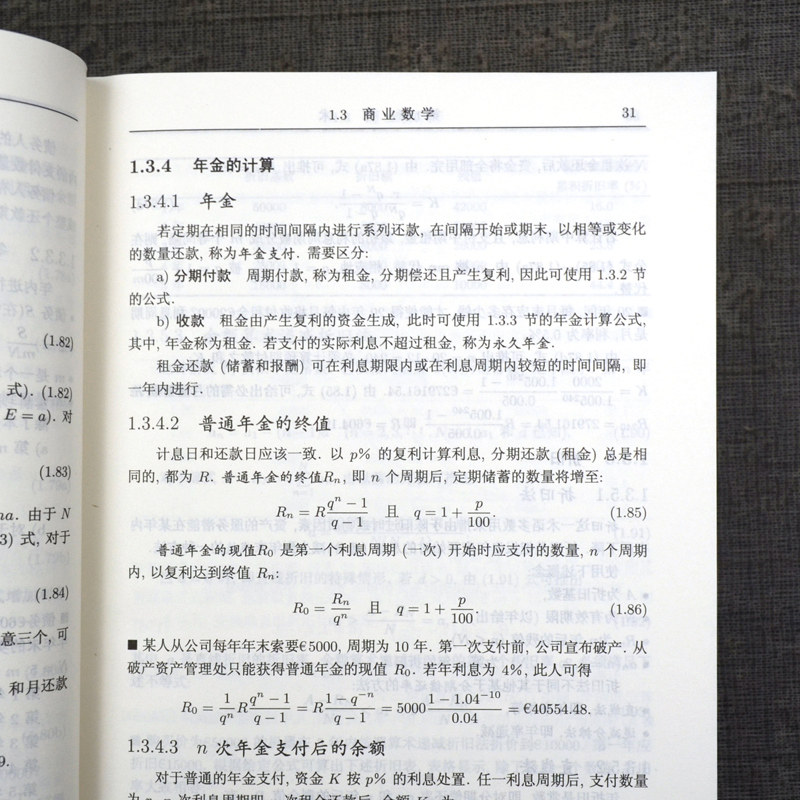 1.3 商业数学 31
1.3.4 年金的计算
1.3.4.1 年金
若定期在相同的时间间隔内进行系列还款, 在间隔开始或期末, 以相等或变化
的数量还款, 称为年金支付. 需要区分:
a) 分期付款 周期付款, 称为租金, 分期偿还且产生复利, 因此可使用 1.3.2 节
的公式.
b) 收款 租金由产生复利的资金生成, 此时可使用 1.3.3 节的年金计算公式,
其中, 年金称为租金. 若支付的实际利息不超过租金, 称为永久年金.
租金还款 (储蓄和报酬) 可在利息期限内或在利息周期内较短的时间间隔, 即
一年内进行.
1.3.4.2 普通年金的终值
计息日和还款日应该一致. 以 p% 的复利计算利息, 分期还款 (租金) 总是相
同的, 都为 R. 普通年金的终值Rn, 即 n 个周期后, 定期储蓄的数量将增至:
Rn = R (q^n − 1)/(q − 1) 且 q = 1 + p/100. (1.85)
普通年金的现值R0 是第一个利息周期 (一次) 开始时应支付的数量, n 个周期
内, 以复利达到终值 Rn:
R0 = Rn/q^n 且 q = 1 + p/100. (1.86)
■ 某人从公司每年年末索要€5000, 周期为 10 年. 第一次支付前, 公司宣布破产. 从
破产资产管理处只能获得普通年金的现值 R0. 若年利息为 4%, 此人可得
R0 = 1/q^n R (q^n − 1)/(q − 1) = R (1 − q^−n)/(q − 1) = 5000 (1 − 1.04^−10)/0.04 = €40554.48.
1.3.4.3 n 次年金支付后的余额
对于普通的年金支付, 资金 K 按 p% 的利息处置. 任一利息周期后, 支付数量
(1.82)
式). (1.82)
E = a). 对
(1.83)
na. 由于 N
3) 式, 对于
(1.84)
意三个, 可
和月还款
9.